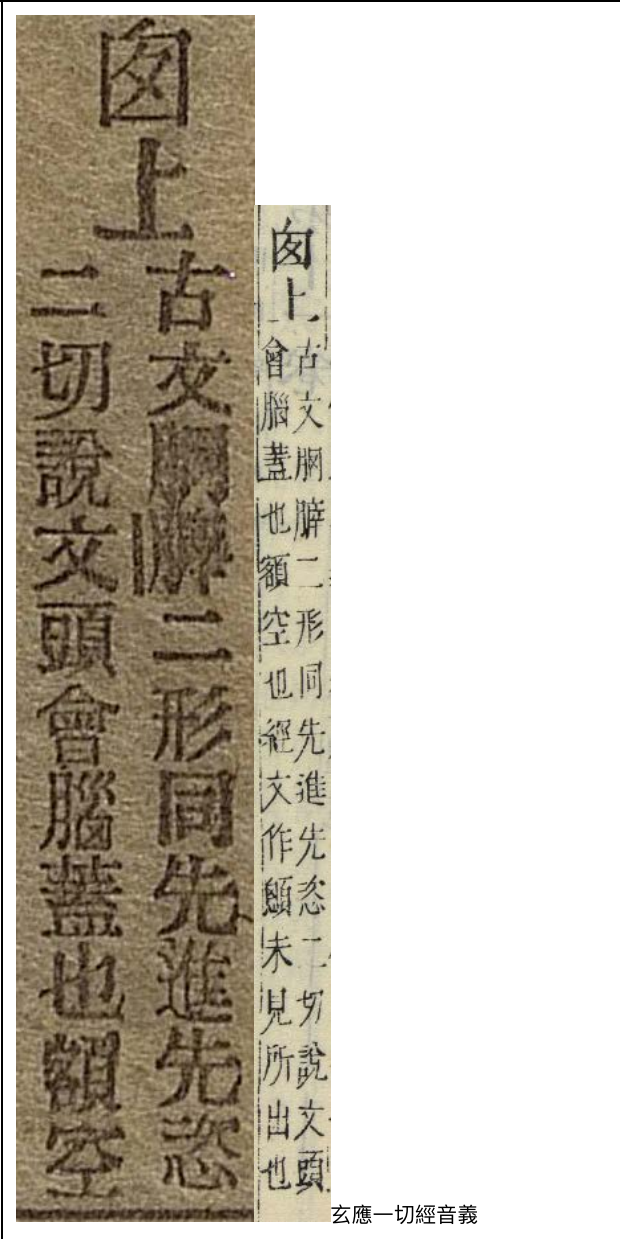 囱上
古文二形同先進先恣
二切說文頭會腦蓋也額空
囱上
古文二形同先進先恣二切說文頭
會腦蓋也額空也經文作顖未見所出也
玄應一切經音義